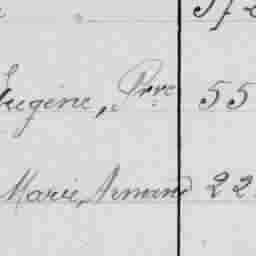 Eugène, Prre 55
Marie, Armand 22